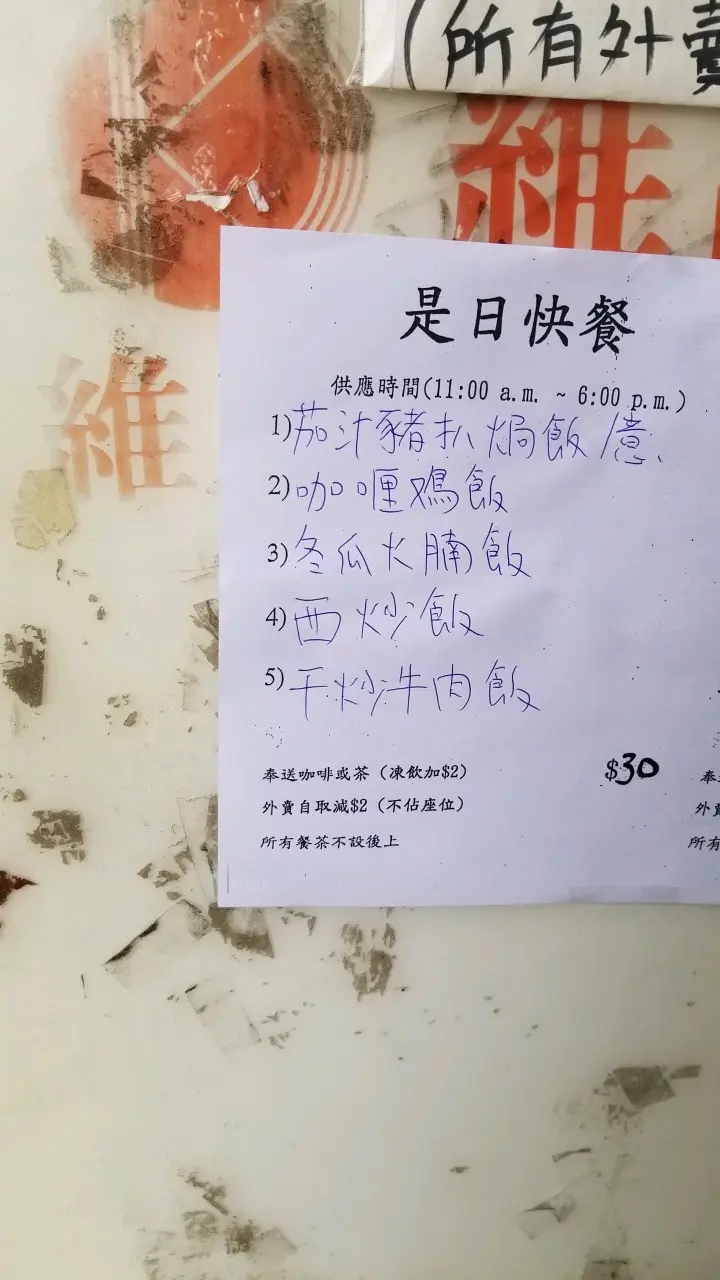 (所有外賣
維
維
是日快餐
供應時間(11:00 a.m. ~ 6:00 p.m.)
1)茄汁豬扒焗飯/意、
2)咖喱鳮飯
3)冬瓜火腩飯
4)西炒飯
5)干炒牛肉飯
奉送咖啡或茶（凍飲加$2）
$30
外賣自取減$2（不佔座位）
所有餐茶不設後上
奉
外賣
所有